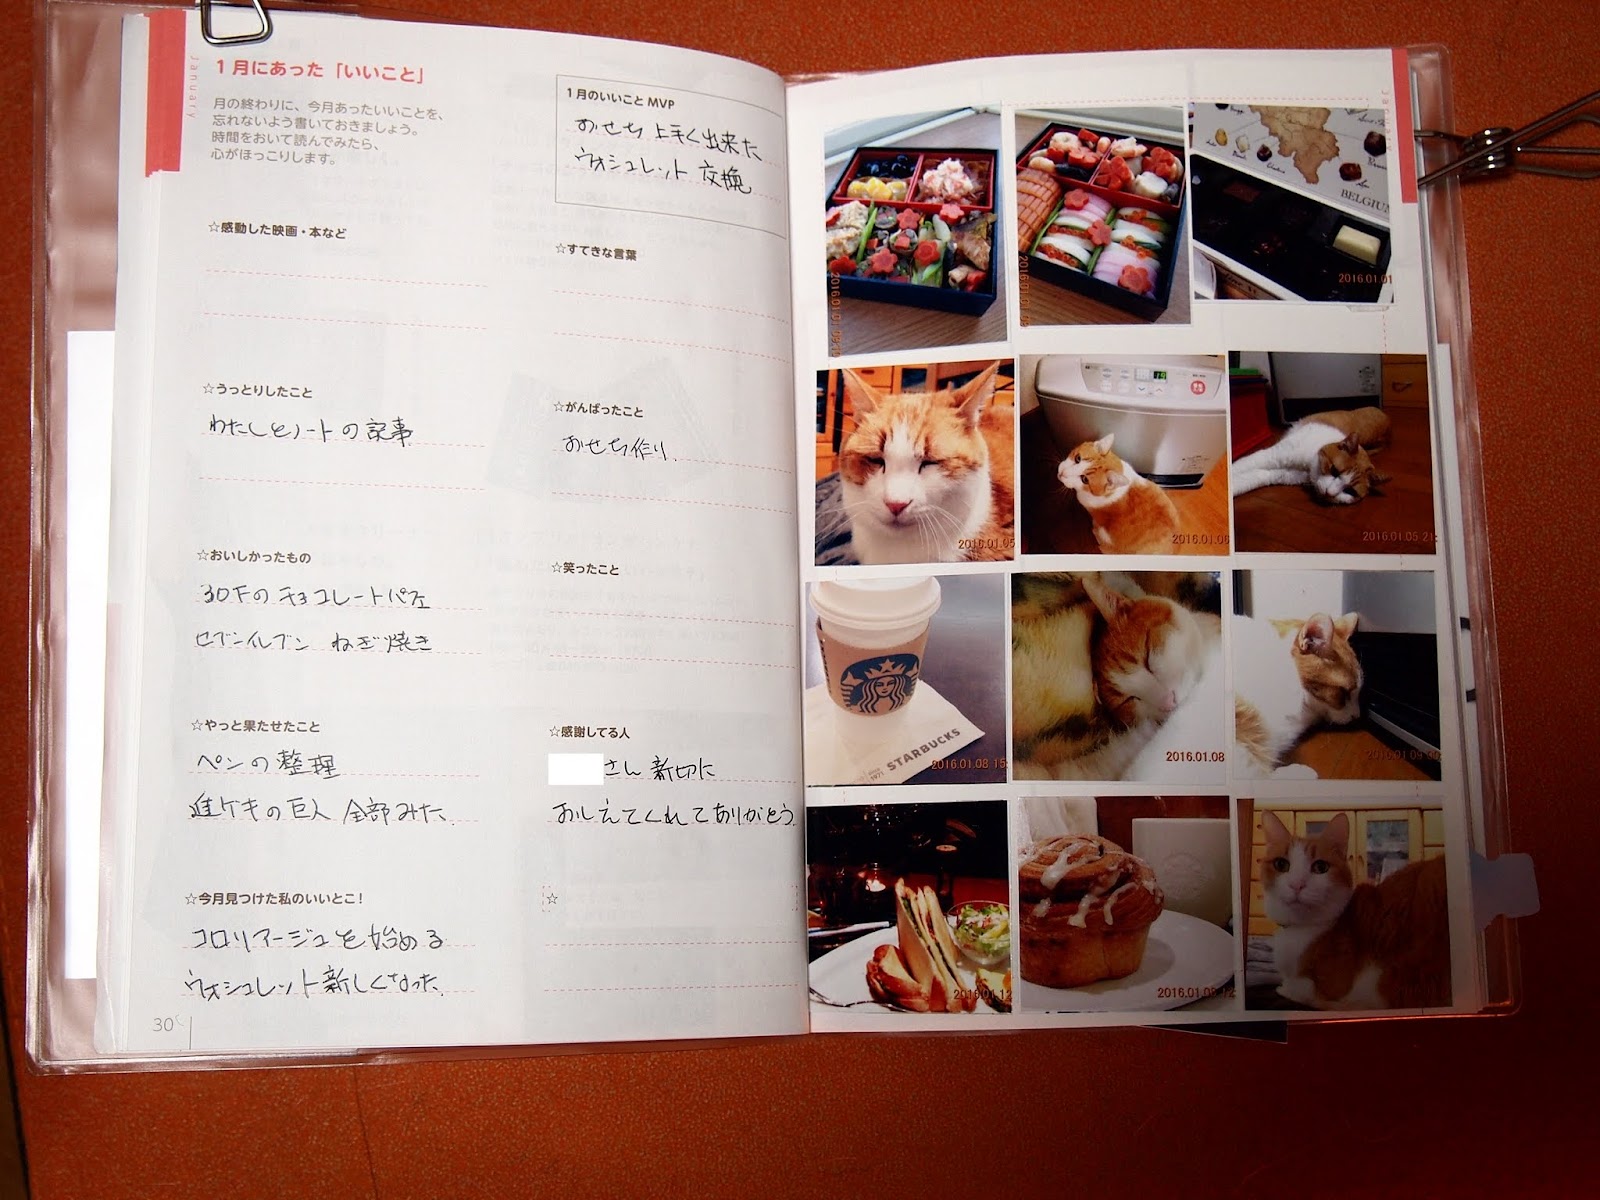 January
1月にあった「いいこと」
月の終わりに、今月あったいいことを、
忘れないよう書いておきましょう。
時間をおいて読んでみたら、
心がほっこりします。
1月のいいこと MVP
おせち上手く出来た
ウォシュレット交換
☆感動した映画・本など
☆すてきな言葉
☆うっとりしたこと
わたしとノートの記事
☆がんばったこと
おせち作り.
☆おいしかったもの
30Fのチョコレートパフェ
セブンイレブン ねぎ焼き
☆笑ったこと
☆やっと果たせたこと
ペンの整理
進ゲキの巨人 全部みた.
☆感謝してる人
さん 親切に
おしえてくれてありがとう.
☆今月見つけた私のいいとこ!
コロリアージュを始める
ウォシュレット新しくなった.
☆
30
January
2016.01.01
BELGIUM
2016.01.01
2016.01.05
2016.01.06
19
2016.01.05 21:
STARBUCKS
2016.01.08 15:
2016.01.08
2016.01.09
2016.01.12
2016.01.09 12